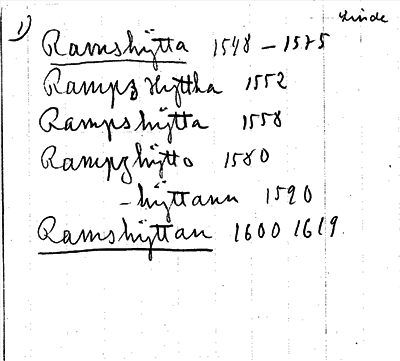 Linde
1) Ramshÿtta 1548 – 1575
Rampz Hÿttha 1552
Rampshÿtta 1558
Rampzhÿtto 1580
–hÿttann 1590
Ramshÿttan 1600 1619.